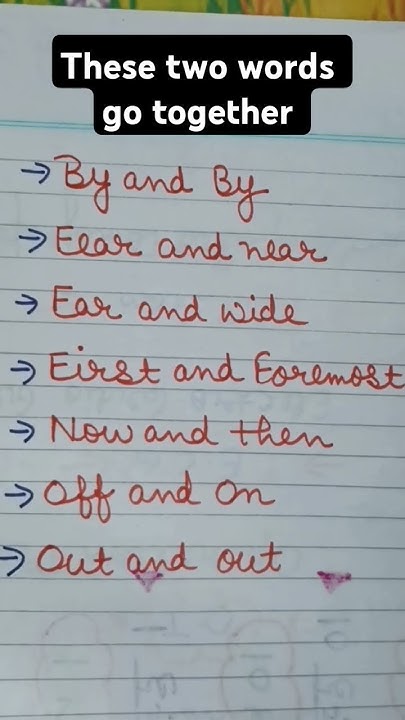 These two words
go together
→ By and By
→ Fear and near
→ Far and wide
→ First and Foremost
→ Now and then
→ Off and On
→ Out and out